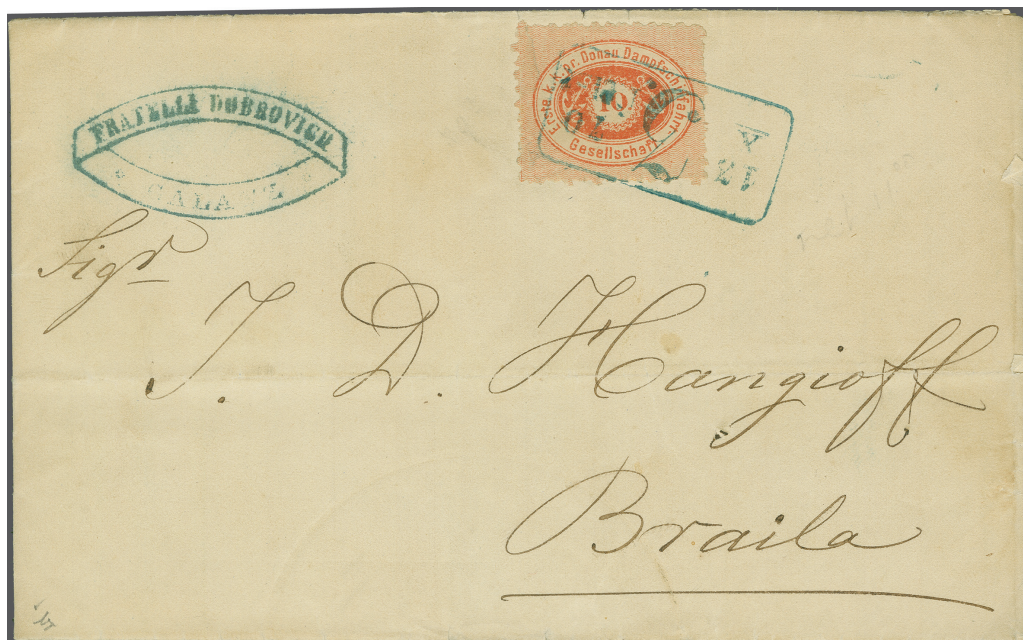 FRATELLI DOBROVICH
GALATZ
Erste k.k. pr. Donau Dampfschiffahrt-
Gesellschaft
10
Sigr
I. D. Hangioff
Braila